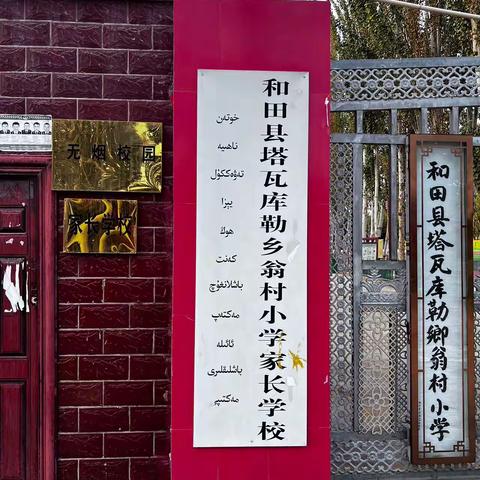 无烟校园
家长学校
خوتەن
ناھىيە
تەۋەككۈل
يېزا
ھوڭ
كەنت
باشلانغۇچ
مەكتەپ
ئائىلە
باشلىقلىرى
مەكتىپى
和田县塔瓦库勒乡翁村小学家长学校
和田县塔瓦库勒乡翁村小学